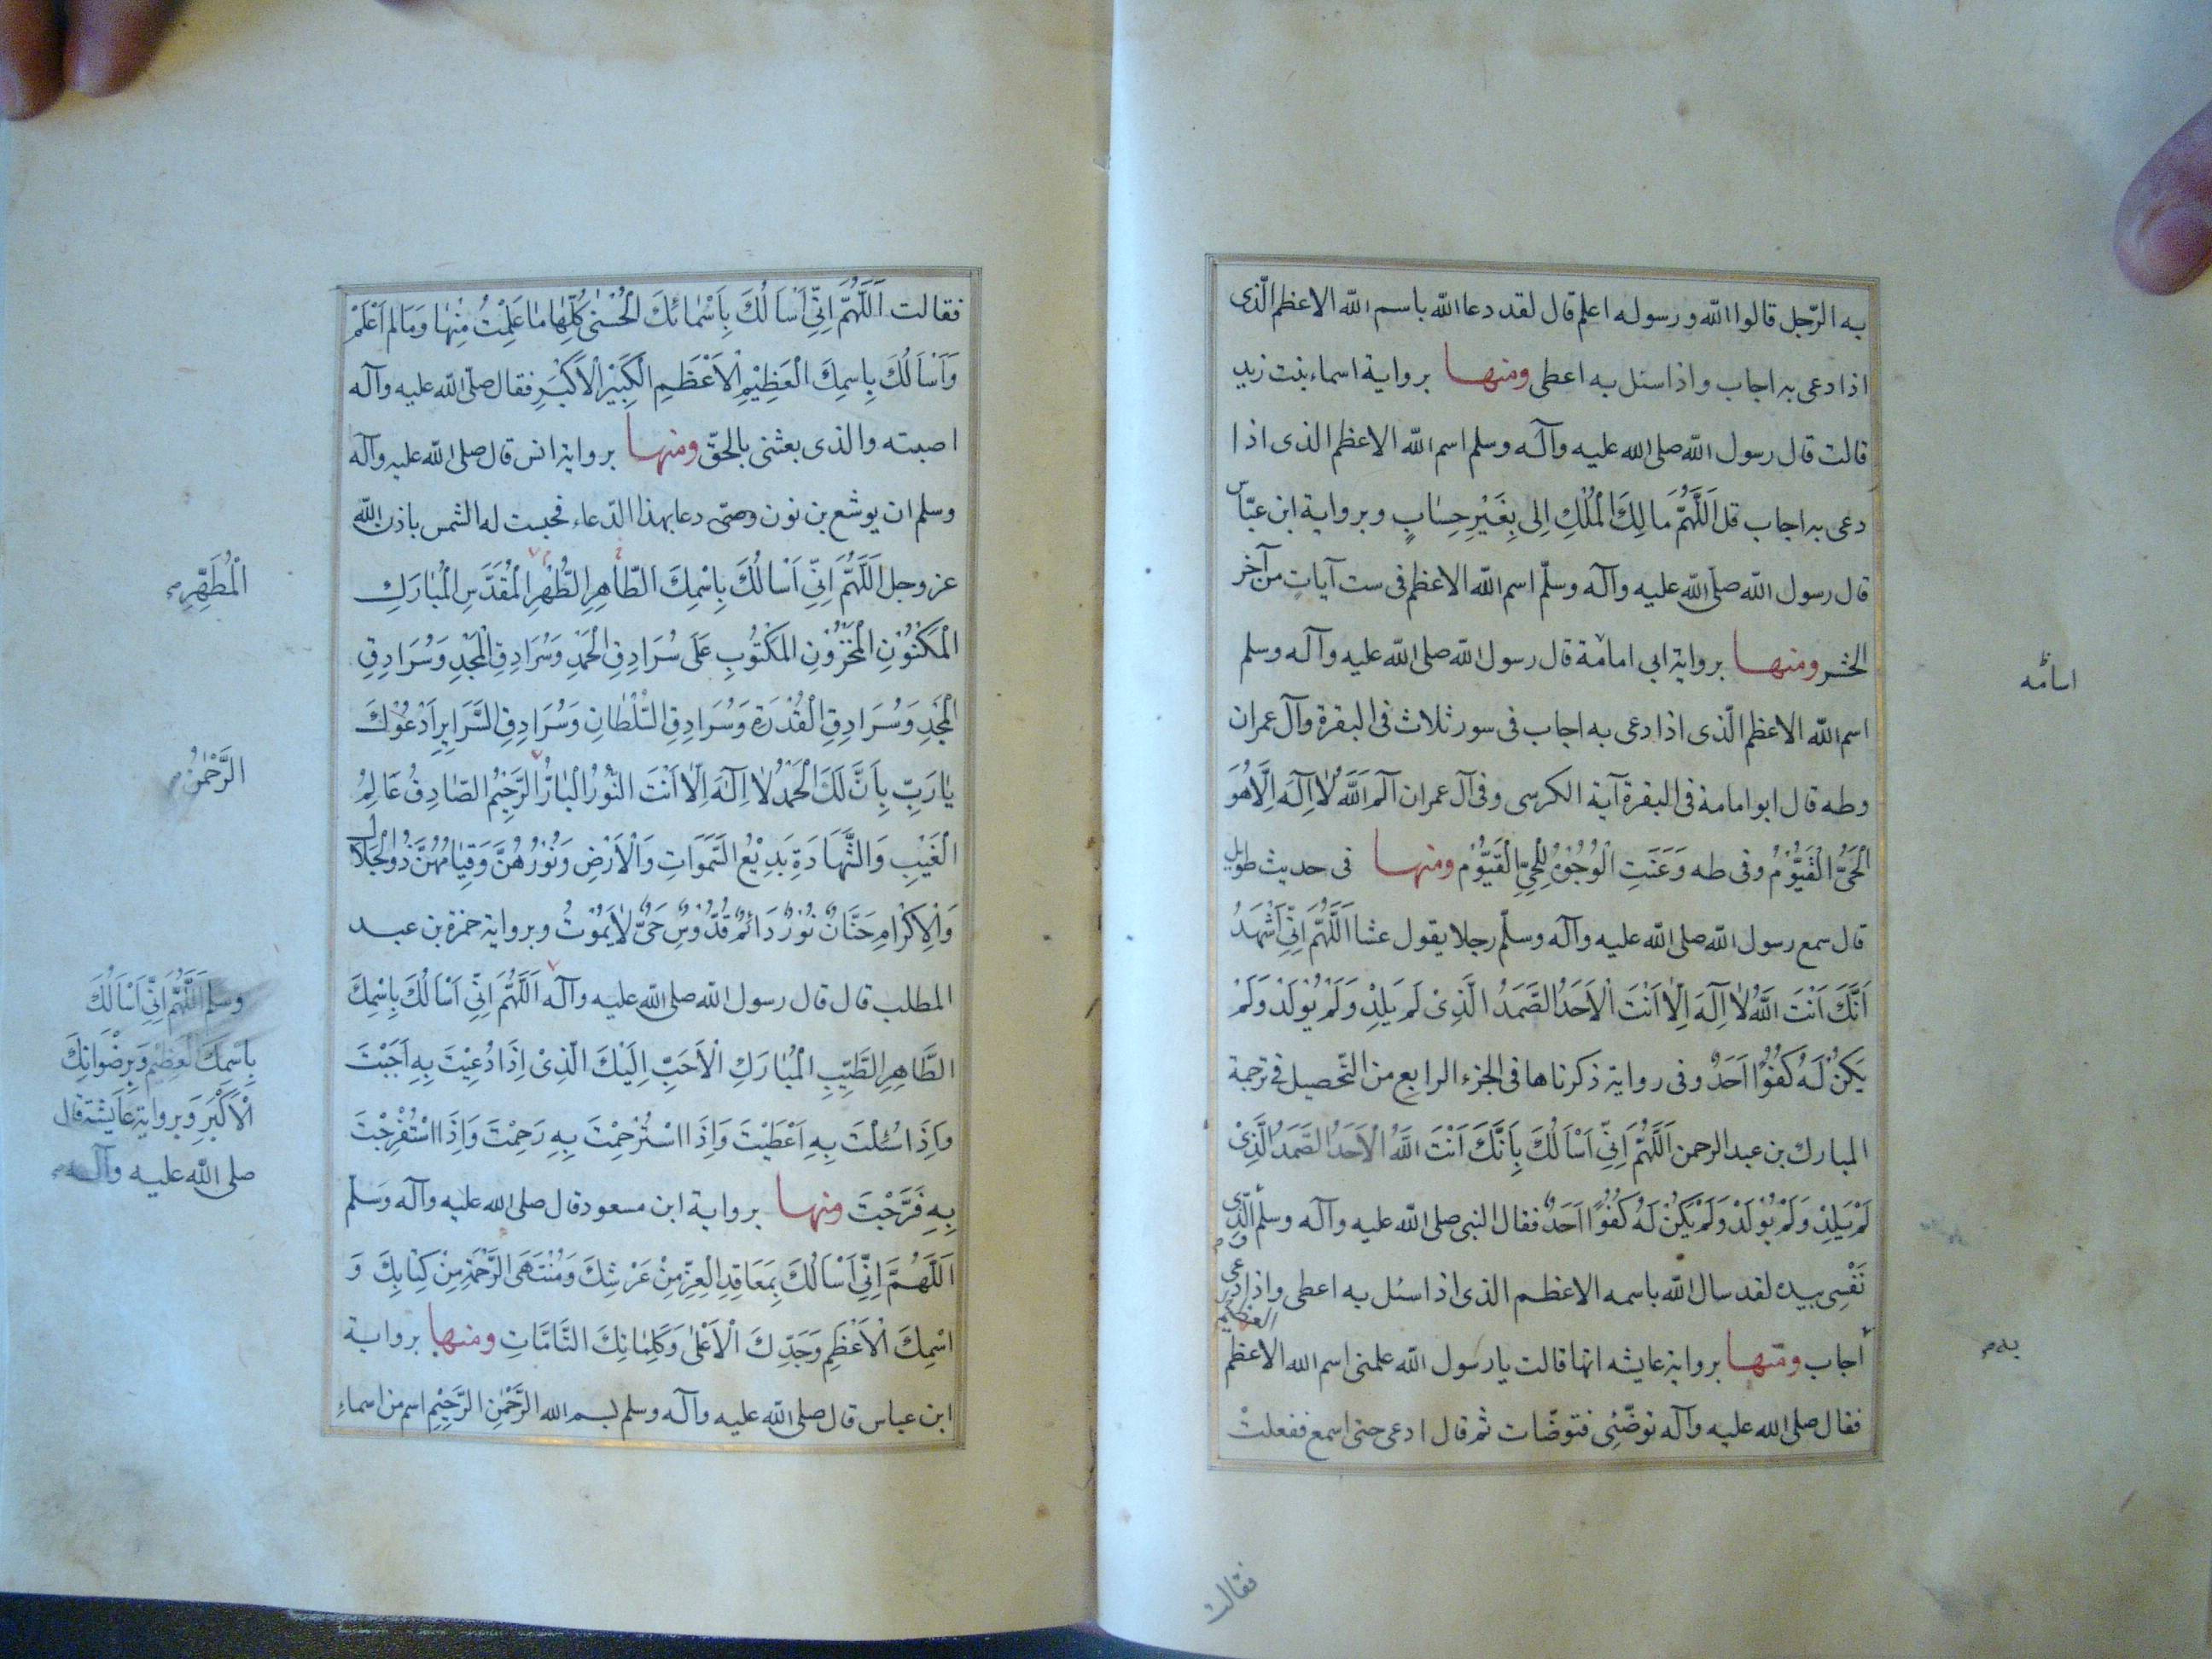 به الرّجل قالوا الله ورسوله اعلم قال لقد دعا الله باسم الله الاعظم الّذى
اذا دعى به اجاب واذا سئل به اعطى ومنها برواية اسماء بنت زيد
قالت قال رسول الله صلى الله عليه وآله وسلم اسم الله الاعظم الذى اذا
دعى به اجاب قل اَللَّهُمَّ مَالِكَ الْمُلْكِ اِلى بِغَيْرِ حِسٰابٍ وبرواية ابن عبّاس
قال رسول الله صلّى الله عليه وآله وسلّم اسم الله الاعظم فى ست آيات من آخر
الحشر ومنها برواية ابى امامة قال رسول الله صلى الله عليه وآله وسلم
اسامه
اسم الله الاعظم الّذى اذا دعى به اجاب فى سور ثلاث فى البقرة وآل عمران
وطه قال ابو امامة فى البقرة آية الكرسى وفى آل عمران آلم اَللَّهُ لٰا اِلَهَ اِلَّا هُوَ
الْحَىُّ الْقَيُّوْمُ وفى طه وَعَنَتِ الْوُجُوْهُ لِلْحَىِّ الْقَيُّوْمِ ومنها فى حديث طويل
قال سمع رسول الله صلى الله عليه وآله وسلّم رجلا يقول عشا اَللَّهُمَّ اِنِّى اَشْهَدُ
اَنَّكَ اَنْتَ اللَّهُ لٰا اِلَهَ اِلّٰا اَنْتَ الْاَحَدُ الصَّمَدُ الَّذِىْ لَمْ يَلِدْ وَلَمْ يُوْلَدْ وَلَمْ
يَكُنْ لَهُ كُفُوًا اَحَدٌ وفى رواية ذكرناها فى الجزء الرابع من التّحصيل فى ترجمة
المبارك بن عبد الرحمن اَللَّهُمَّ اِنِّى اَسْاَلُكَ بِاَنَّكَ اَنْتَ اللَّهُ الْاَحَدُ الصَّمَدُ الَّذِىْ
لَمْ يَلِدْ وَلَمْ يُوْلَدْ وَلَمْ يَكُنْ لَهُ كُفُوًا اَحَدٌ فقال النبى صلى الله عليه وآله وسلم الّذى
نَفْسِى بيده لقد سال الله باسمه الاعظم الذى اذا سئل به اعطى واذا دعى
اجاب ومنها برواية عايشه انها قالت يا رسول الله علمنى اسم الله الاعظم
به
فقال صلى الله عليه وآله توضّئِى فتوضّات ثم قال ادعى حتى اسمع ففعلتْ
فقالت
فقالت اَللَّهُمَّ اِنِّى اَسْاَلُكَ بِاَسْمٰائكَ الْحُسْنٰى كُلِّهٰا مٰا عَلِمْتُ مِنْهٰا وَمَا لم اَعْلَمْ
وَاَسْاَلُكَ بِاسمِكَ الْعَظِيْمِ الْاَعْظَمِ الْكَبِيْرِ الْاَكْبَرِ فقال صلّى الله عليه وآله
اصبته والذى بعثنى بالحقّ ومنها برواية انس قال صلى الله عليه وآله
وسلم ان يوشع بن نون وصىّ دعا بهذا الدّعاء فحبست له الشمس باذن الله
عز وجل اَللَّهُمَّ اِنِّى اَسْاَلُكَ بِاسْمِكَ الطّٰاهِرِ الطُّهْرِ الْمُقَدَّسِ الْمُبٰارَكِ
الْمُطَهَّرِ
الْمَكْنُوْنِ الْمَخْزُوْنِ الْمَكْتُوبِ عَلَى سُرَادِقِ الْحَمْدِ وَسُرَادِقِ الْمَجْدِ وَسُرَادِقِ
الْمَجْدِ وَسُرَادِقِ الْقُدْرَةِ وَسُرَادِقِ السُّلْطَانِ وَسُرَادِقِ السَّرَايِرِ اَدْعُوْكَ
يٰا رَبِّ بِاَنَّ لَكَ الْحَمْدُ لٰا اِلٰهَ اِلّٰا اَنْتَ النُّوْرُ الْبٰارُّ الرَّحِيْمُ الصّٰادِقُ عَالِمُ
الرَّحْمٰنُ
الْغَيْبِ وَالشَّهَادَةِ بَدِيْعُ السَّمَوَاتِ وَالْاَرْضِ وَنُوْرُهُنَّ وَقِيٰامُهُنَّ ذُو الْجَلَالِ
وَالْاِكْرٰامِ حَنَّانٌ نُوْرٌ دَائمٌ قُدُّوْسٌ حَىٌّ لٰا يَمُوْتُ وبرواية حمزة بن عبد
المطلب قال قال رسول الله صلى الله عليه وآله اَللَّهُمَّ اِنِّى اَسْاَلُكَ بِاسْمِكَ
وسلم اَللَّهُمَّ اِنِّى اَسْاَلُكَ
بِاسْمِكَ الْعَظِيْمِ وَبِرِضْوَانِكَ
الْاَكْبَرِ وبرواية عَايشة قال
صلى الله عليه وآله
الطَّاهِرِ الطَّيِّبِ الْمُبٰارَكِ الْاَحَبِّ اِلَيْكَ الَّذِىْ اِذَا دُعِيْتَ بِهِ اَجَبْتَ
وَاِذَا سُئِلْتَ بِهِ اَعْطَيْتَ وَاِذَا اسْتُرْحِمْتَ بِهِ رَحِمْتَ وَاِذَا اسْتُفْرِجْتَ
بِهِ فَرَّجْتَ ومنها برواية ابن مسعود قال صلى الله عليه وآله وَسلّم
اَللَّهُمَّ اِنِّى اَسْاَلُكَ بِمَعَاقِدِ الْعِزِّ مِنْ عَرْشِكَ وَمُنْتَهَى الرَّحْمَةِ مِنْ كِتٰابِكَ وَ
اسْمِكَ الْاَعْظَمِ وَجَدِّكَ الْاَعْلٰى وَكَلِمٰاتِكَ التَّامَّاتِ ومنها برواية
ابن عباس قال صلى الله عليه وآله وسلم بسم الله الرَّحْمٰنِ الرَّحِيْمِ اسم من اسماءِ